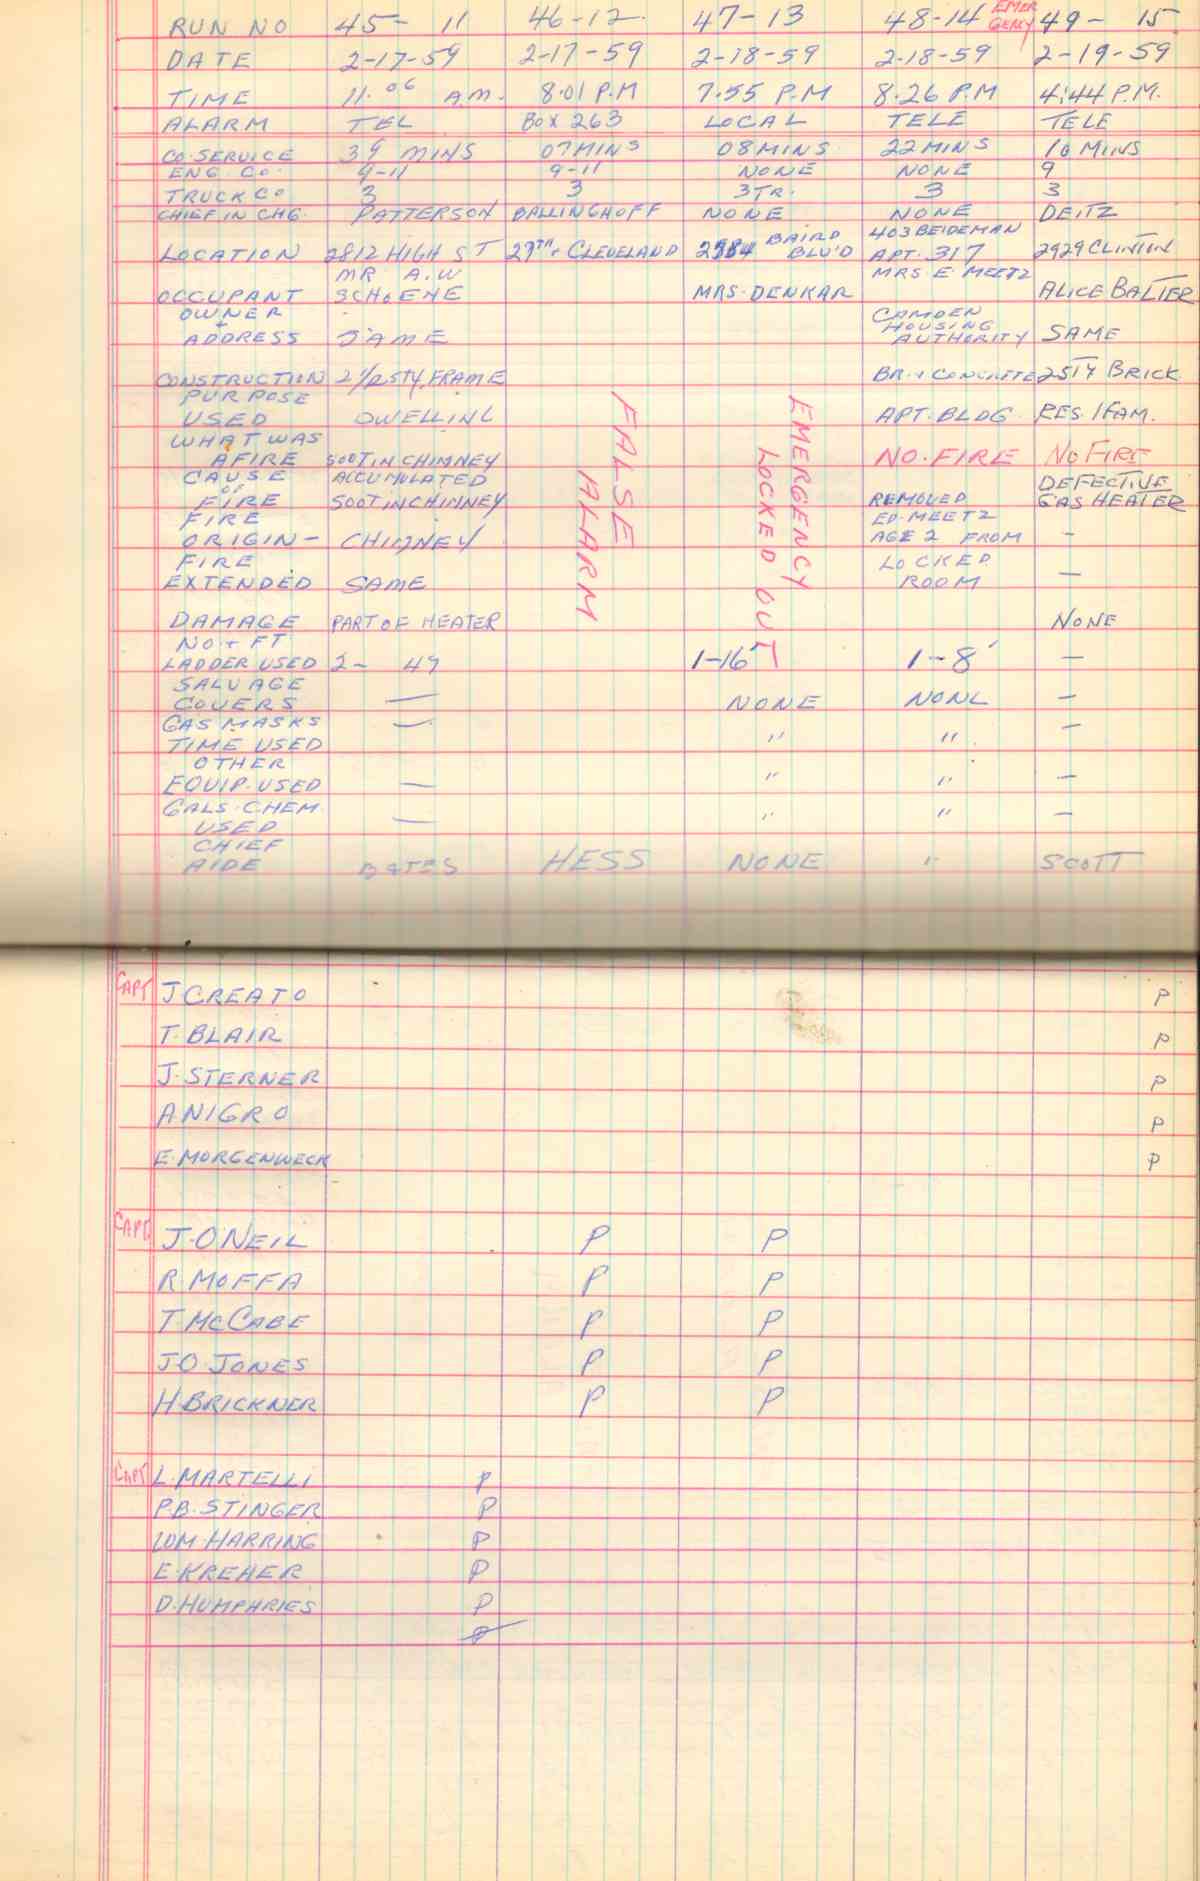 RUN NO 45- 11 46-12 47-13 48-14 EMER GENCY 49- 15
DATE 2-17-59 2-17-59 2-18-59 2-18-59 2-19-59
TIME 11.06 A.M. 8.01 P.M 7.55 P.M 8.26 P.M 4:44 P.M.
ALARM TEL BOX 263 LOCAL TELE TELE
CO.SERVICE 39 MINS 07 MINS 08 MINS 22 MINS 10 MINS
ENG. CO. 9-11 9-11 NONE NONE 9
TRUCK CO 3 3 3TR. 3 3
CHIEF IN CHG. PATTERSON BALLINGHOFF NONE NONE DEITZ
403 BEIDEMAN
LOCATION 2812 HIGH ST 27TH + CLEVELAND 2984 BAIRD BLV'D APT. 317 2929 CLINTON
MR A.W MRS. E. MEETZ
OCCUPANT SCHOENE MRS. DENKAR ALICE BALTER
OWNER CAMDEN
+ HOUSING
ADDRESS SAME AUTHORITY SAME
CONSTRUCTION 2 1/2 STY. FRAME BR. + CONCRETE 2STY BRICK
PURPOSE
USED DWELLING APT. BLDG RES. 1FAM.
WHAT WAS
AFIRE SOOT IN CHIMNEY FALSE ALARM EMERGENCY LOCKED OUT NO. FIRE NO FIRE
CAUSE ACCUMULATED DEFECTIVE
OF
FIRE SOOT IN CHIMNEY REMOVED GAS HEATER
FIRE ED. MEETZ
ORIGIN - CHIMNEY AGE 2 FROM -
FIRE LOCKED
EXTENDED SAME ROOM -
DAMAGE PART OF HEATER NONE
NO. + FT
LADDER USED 2- 49 1-16' 1-8' -
SALVAGE
COVERS - NONE NONE -
GAS MASKS - -
TIME USED " "
OTHER
EQUIP. USED - " " -
GALS. CHEM. - " " -
USED
CHIEF
AIDE BATES HESS NONE " SCOTT
CAPT J CREATO P
T. BLAIR P
J. STERNER P
A NIGRO P
E. MORGENWECK P
CAPT. J. O'NEIL P P
R. MOFFA P P
T. MCCABE P P
J.O. JONES P P
H. BRICKNER P P
CAPT L. MARTELLI P
P.B. STINGER P
WM. HARRING P
E. KREHER P
D. HUMPHRIES P
P